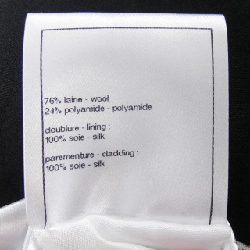 76% laine - wool
24% polyamide - polyamide
doublure - lining :
100% soie - silk
parementure - cladding :
100% soie - silk